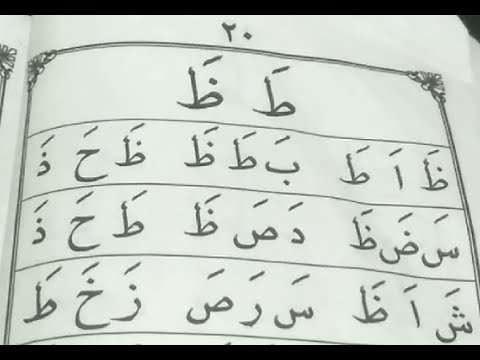 ٢٠
طَ ظَ
ظَ اَ طَ بَ طَ ظَ ظَ حَ ذَ
سَ ضَ ظَ دَ صَ ظَ طَ حَ ذَ
شَ اَ ظَ سَ رَ صَ زَ خَ طَ